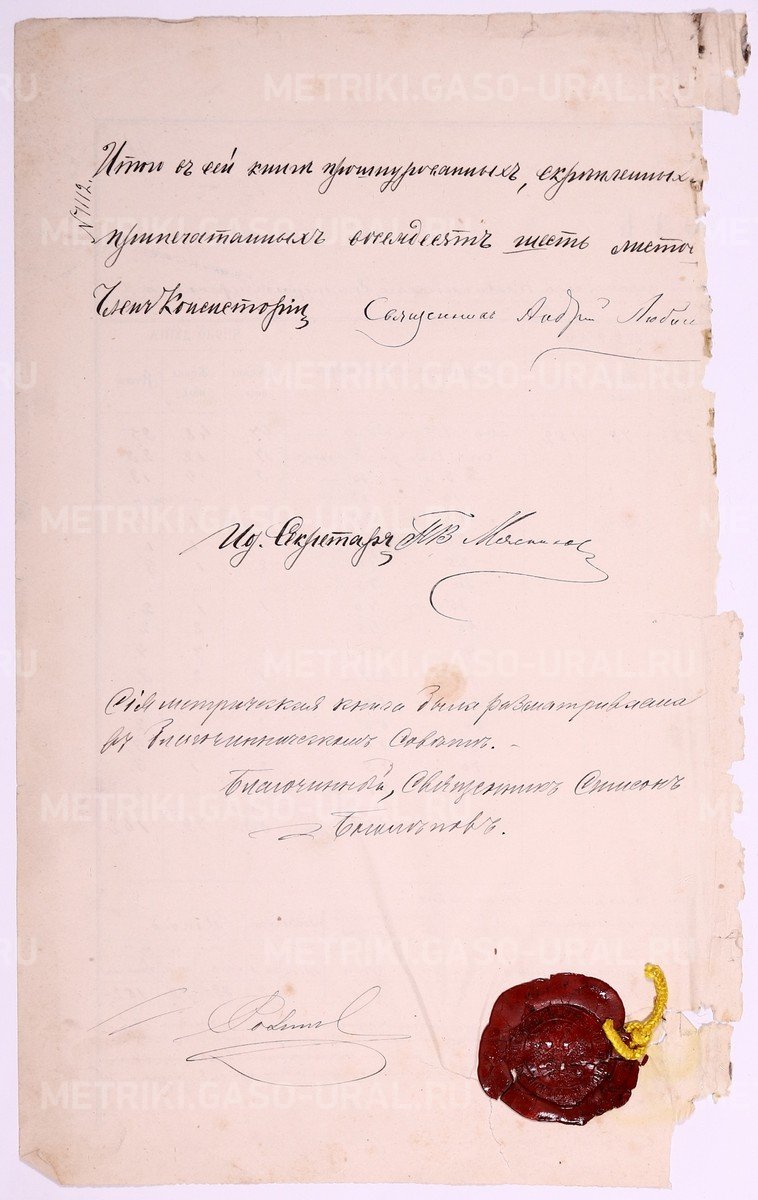 № 7112.
Итого въ сей книгѣ прошнурованныхъ, скрѣпленныхъ
припечатанныхъ восемьдесятъ шесть листо
Членъ Консисторіи Священникъ Андрей
Ид. Секретаря
Сія метрическая книга была разматриваема
въ благочинническомъ Совѣтѣ. -
Благочинный, Священникъ Симеонъ
METRIKI.GASO-URAL.RU